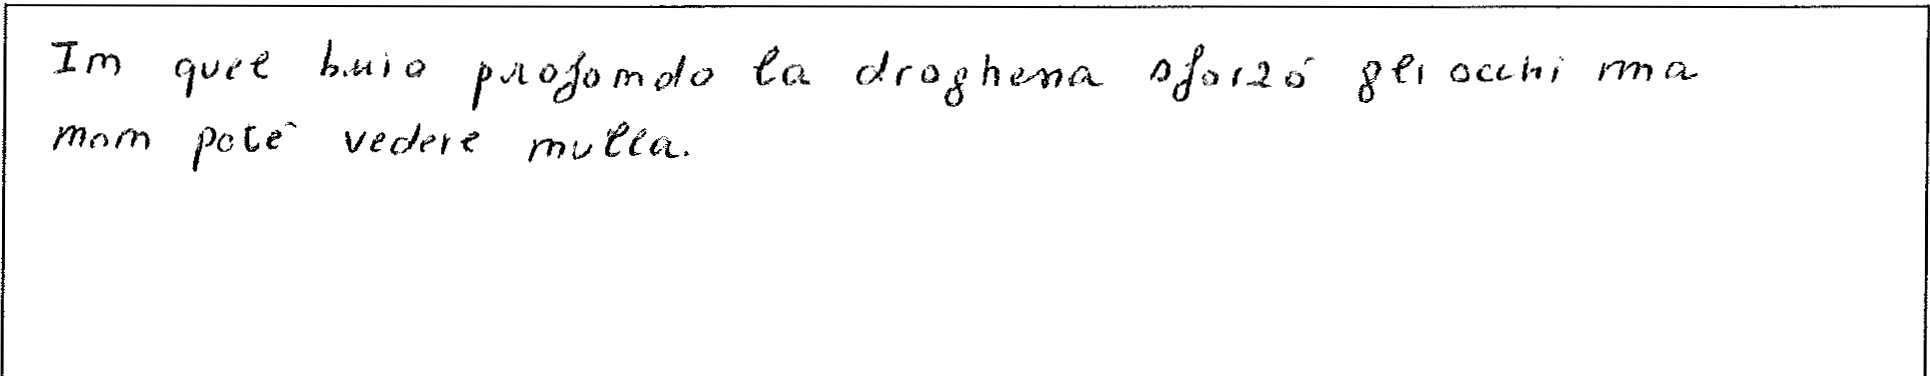 In quel buio profondo la droghena sforzò gli occhi ma
non potè vedere nulla.